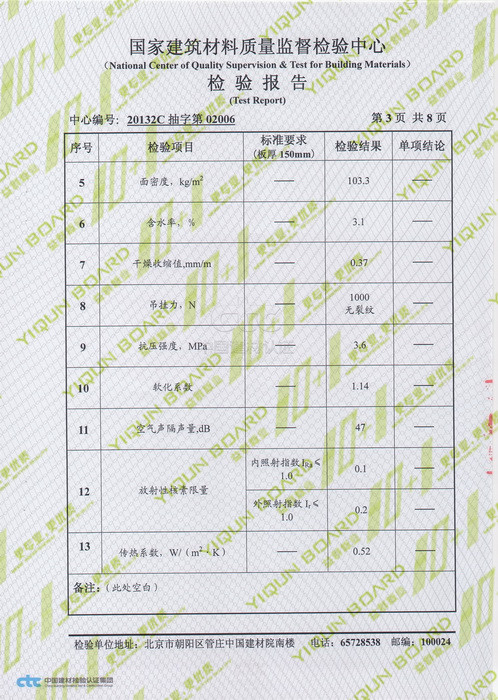 国家建筑材料质量监督检验中心
(National Center of Quality Supervision & Test for Building Materials)
检 验 报 告
(Test Report)
中心编号: 20132C 抽字第 02006 第 3 页 共 8 页
序号 检验项目 标准要求 (板厚 150mm) 检验结果 单项结论
5 面密度, kg/m² —— 103.3 ——
6 含水率, % —— 3.1 ——
7 干燥收缩值,mm/m —— 0.37 ——
8 吊挂力, N —— 1000 无裂纹 ——
9 抗压强度, MPa —— 3.6 ——
10 软化系数 —— 1.14 ——
11 空气声隔声量,dB —— 47 ——
12 放射性核素限量 内照射指数 I_Ra≤ 1.0 0.1 ——
外照射指数 I_r≤ 1.0 0.2 ——
13 传热系数, W/（m²·K） —— 0.52 ——
备注:（此处空白）
检验单位地址: 北京市朝阳区管庄中国建材院南楼 电话: 65728538 邮编: 100024
ctc 中国建材检验认证集团
YIQUN BOARD
益群墙业
10+1
更专业,更优质